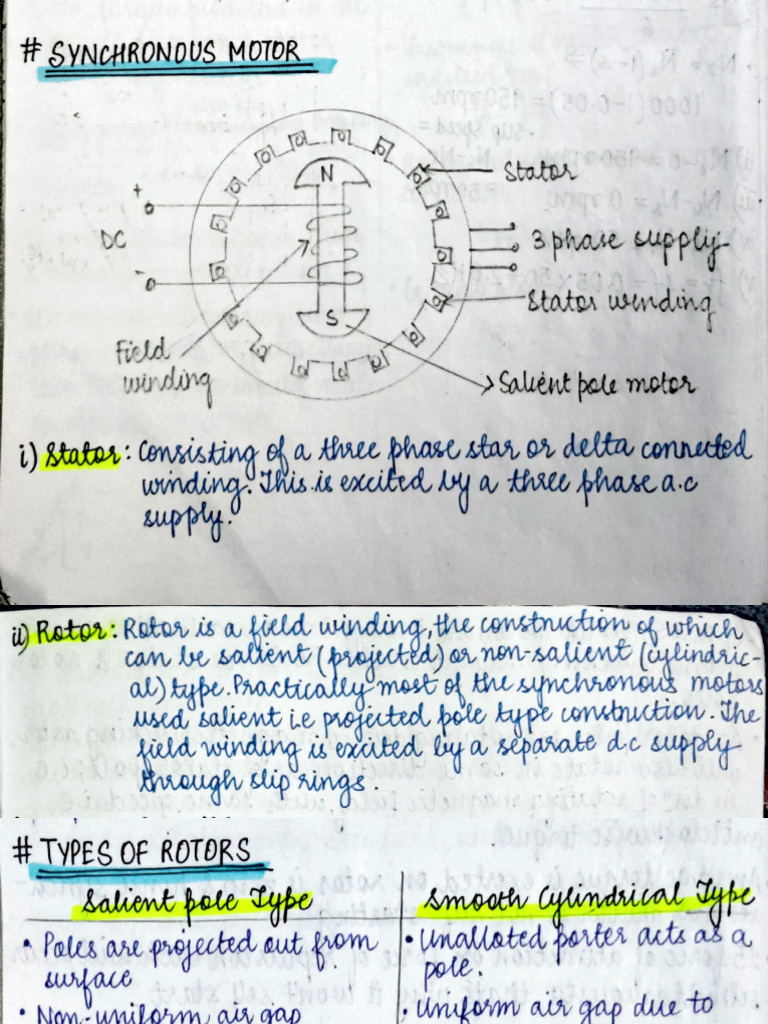 # SYNCHRONOUS MOTOR
Stator
+
N
DC
3 phase supply
-
Stator winding
S
Field
winding
Salient pole motor
i) Stator: Consisting of a three phase star or delta connected
winding. This is excited by a three phase a.c
supply.
ii) Rotor: Rotor is a field winding, the construction of which
can be salient (projected) or non-salient (cylindric-
al) type. Practically most of the synchronous motors
used salient i.e projected pole type construction. The
field winding is excited by a separate d.c supply
through slip rings.
# TYPES OF ROTORS
Salient pole Type
Smooth Cylindrical Type
• Poles are projected out from
surface
• Unalloted porter acts as a
pole.
• Non-uniform air gap
• Uniform air gap due to